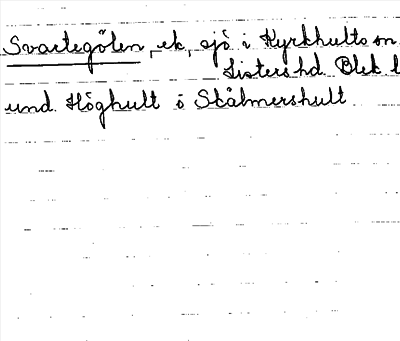 Svartegölen, ek, sjö i Kyrkhults sn
Listers hd Blek l
und. Höghult o Stålmershult